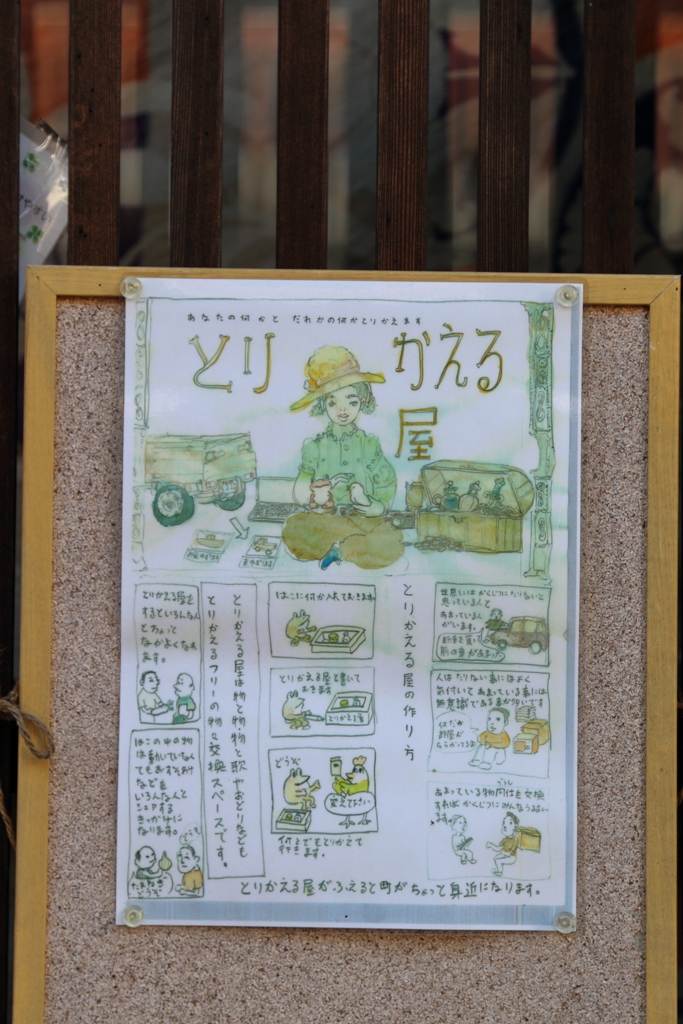 あなたの何かと だれかの何かとりかえます
とりかえる
屋
世界にはかくじつにたりないと
思っている人と
あまっている人
がいます。
新車を買って
前の車があまり
人はたりない事にはよく
気付いて あまっている事には
無意識である事が多いです
何だか
お部屋が
ちらかってるな
あまっている物同士を交換
どうし
すればかくじつにみんなうるおい
ます。
とりかえる屋の作り方
はこに何か入れておきます
とりかえる屋と書いて
おきます
とりかえる屋
どうぞ
変えて下さい
何とでもとりかえて
行きます。
とりかえる屋は物と物、物と歌やおどりなども
とりかえるフリーの物々交換スペースです。
とりかえる屋を
するといろんな人
とちょっと
なかよくなれ
ます。
はこの中の物
は動いていなく
てもおすそわけ
などを
いろんな人と
シェアする
きっかけに
なります。
たまねぎ
どうぞ
とりかえる屋がふえると町がちょっと身近になります。